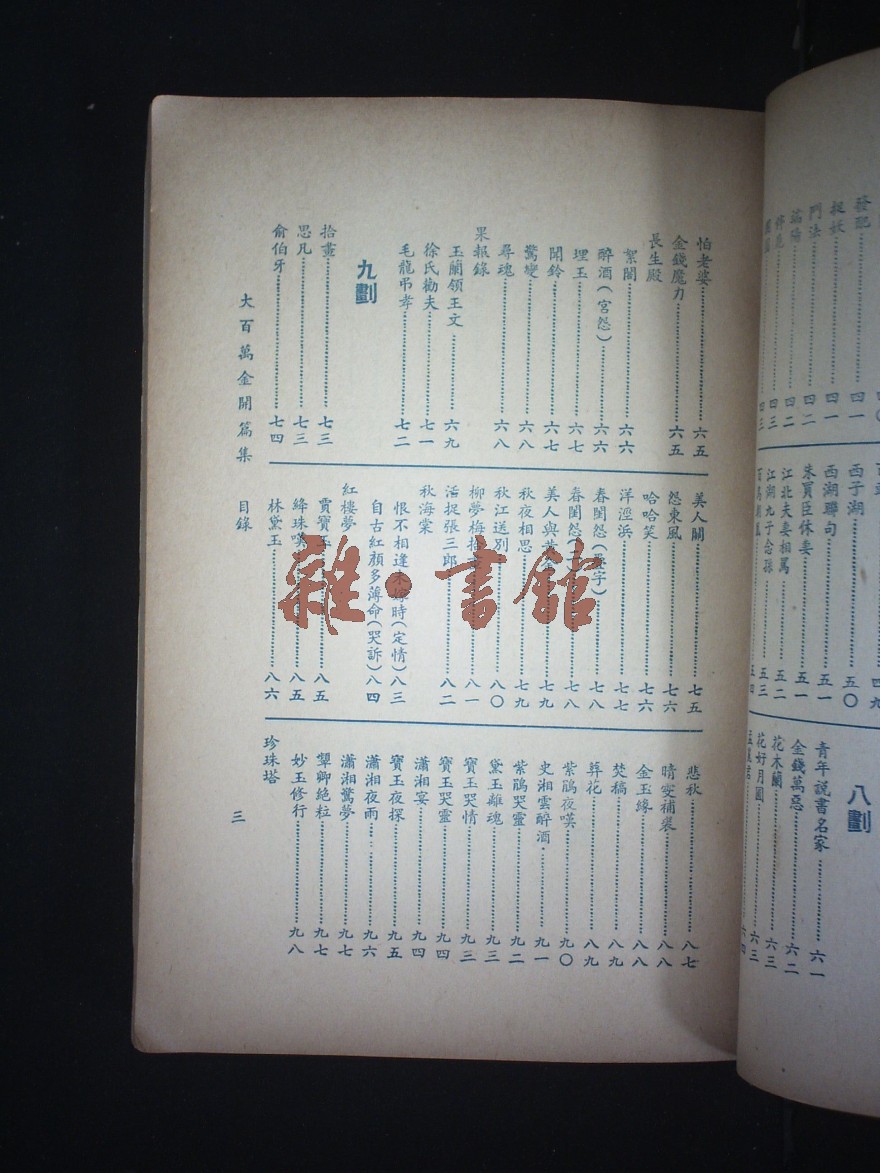 發配……四一
捉妖……四一
鬥法……四二
端陽……四二
四三
四三
四九
西子湖……五〇
西湖聯句……五一
朱買臣休妻……五一
江北夫妻相罵……五二
江湖九子念孫……五三
五四
八劃
青年說書名家……六一
金錢萬惡……六二
花木蘭……六三
花好月圓……六三
六四
怕老婆……六五
金錢魔力……六五
長生殿
絮閣……六六
醉酒(宮怨)……六六
埋玉……六七
聞鈴……六七
驚變……六八
尋魂……六八
果報錄
玉蘭領王文……六九
徐氏勸夫……七一
毛龍弔孝……七二
九劃
拾畫……七三
思凡……七三
俞伯牙……七四
美人關……七五
怨東風……七六
哈哈笑……七六
洋涇浜……七七
春閨怨……七八
春閨怨……七八
美人與黃……七九
秋夜相思……七九
秋江送別……八〇
柳夢梅拾……八一
活捉張三郎……八二
秋海棠
恨不相逢未嫁時(定情)八三
自古紅顏多薄命(哭訴)八四
紅樓夢
賈寶玉……八五
絳珠嘆……八五
林黛玉……八六
悲秋……八七
晴雯補裘……八八
金玉緣……八八
焚稿……八九
葬花……八九
紫鵑夜嘆……九〇
史湘雲醉酒……九一
紫鵑哭靈……九二
黛玉離魂……九三
寶玉哭情……九三
寶玉哭靈……九四
瀟湘宴……九四
寶玉夜探……九五
瀟湘夜雨……九六
瀟湘驚夢……九七
顰卿絶粒……九七
妙玉修行……九八
珍珠塔
大百萬金開篇集 目錄 三
雜·書館